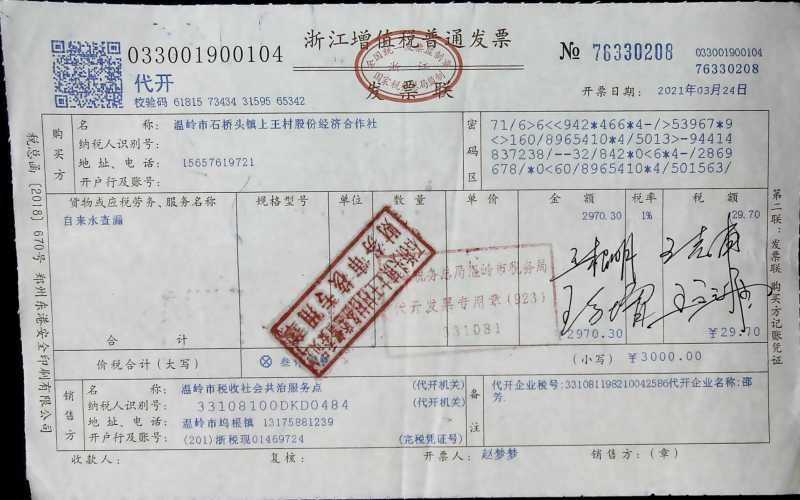 033001900104
浙江增值税普通发票
№ 76330208
033001900104
76330208
代开
校验码 61815 73434 31595 65342
发票联
开票日期: 2021年03月24日
购买方
名称: 温岭市石桥头镇上王村股份经济合作社
纳税人识别号:
地址、电话: 15657619721
开户行及账号:
密码区
71/6>6<<942*466*4-/>53967*9
<>160/8965410*4/5013>-94414
837238/--32/842*0<6*4-/2869
678/*0<60/8965410*4/501563/
货物或应税劳务、服务名称 规格型号 单位 数量 单价 金额 税率 税额
自来水查漏 2970.30 1% 29.70
财务审核专用章
国家税务总局温岭市税务局
代开发票专用章(923)
331081
合计 ¥2970.30 ¥29.70
价税合计(大写) (小写) ¥3000.00
销售方
名称: 温岭市税收社会共治服务点 (代开机关)
纳税人识别号: 33108100DKD0484 (代开机关)
地址、电话: 温岭市坞根镇 13175881239
开户行及账号: (201)浙税现01469724 (完税凭证号)
备注
代开企业税号:331081198210042586代开企业名称:邵
芳.
收款人: 复核: 开票人: 赵梦梦 销售方:(章)
税总函〔2018〕670号 郑州东港安全印刷有限公司
第二联:发票联 购买方记账凭证